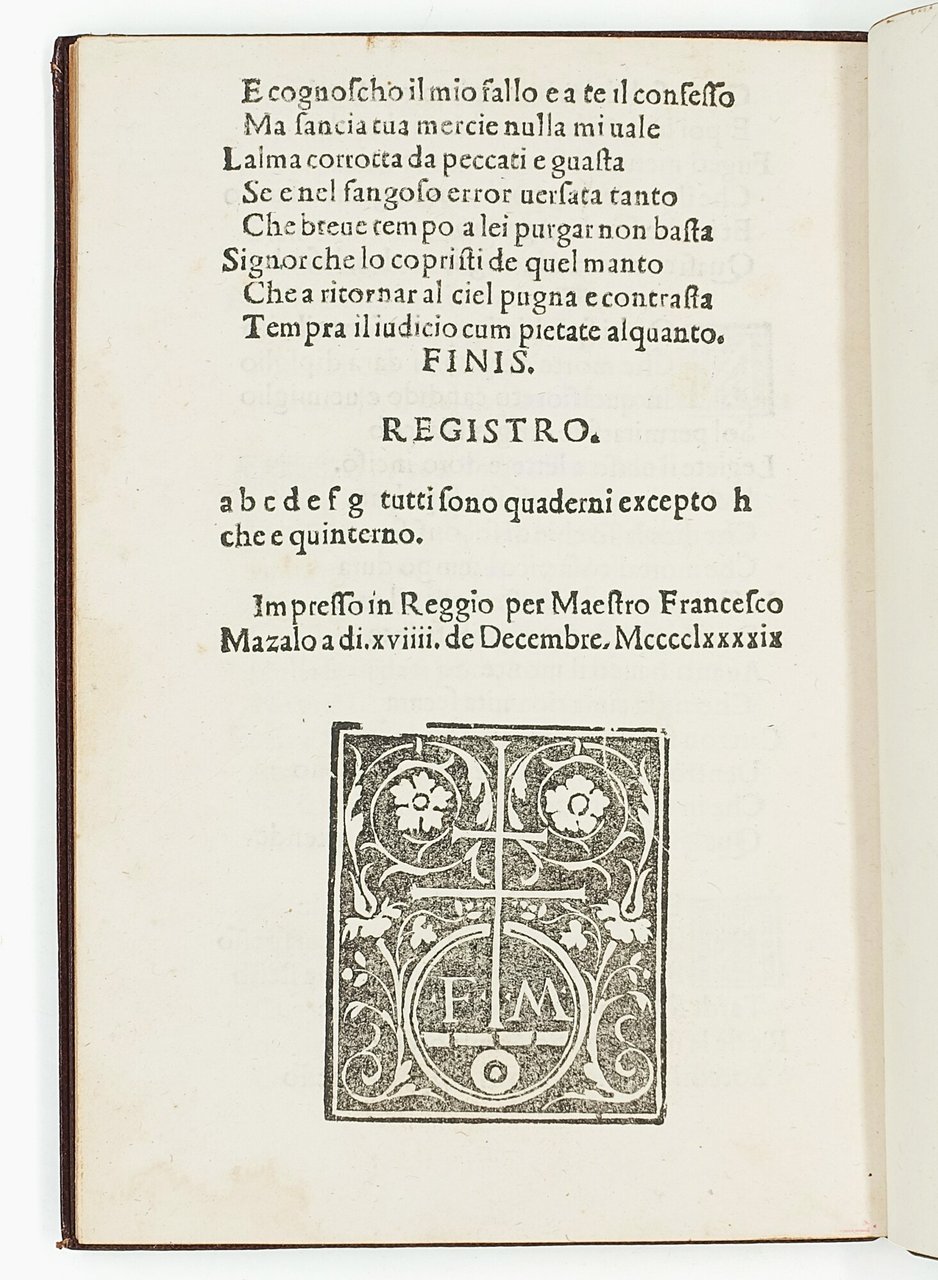 E cognoſcho il mio fallo e a te il confeſſo
Ma ſancia tua mercie nulla mi uale
Lalma corrotta da peccati e guaſta
Se e nel fangoſo error uerſata tanto
Che breue tempo a lei purgar non baſta
Signor che lo copriſti de quel manto
Che a ritornar al ciel pugna e contraſta
Tempra il iudicio cum pietate alquanto.
FINIS.
REGISTRO.
a b c d e f g tutti ſono quaderni excepto h
che e quinterno.
Impreſſo in Reggio per Maeſtro Franceſco
Mazalo a di.xviiii. de Decembre. Mcccclxxxxix
·F· M